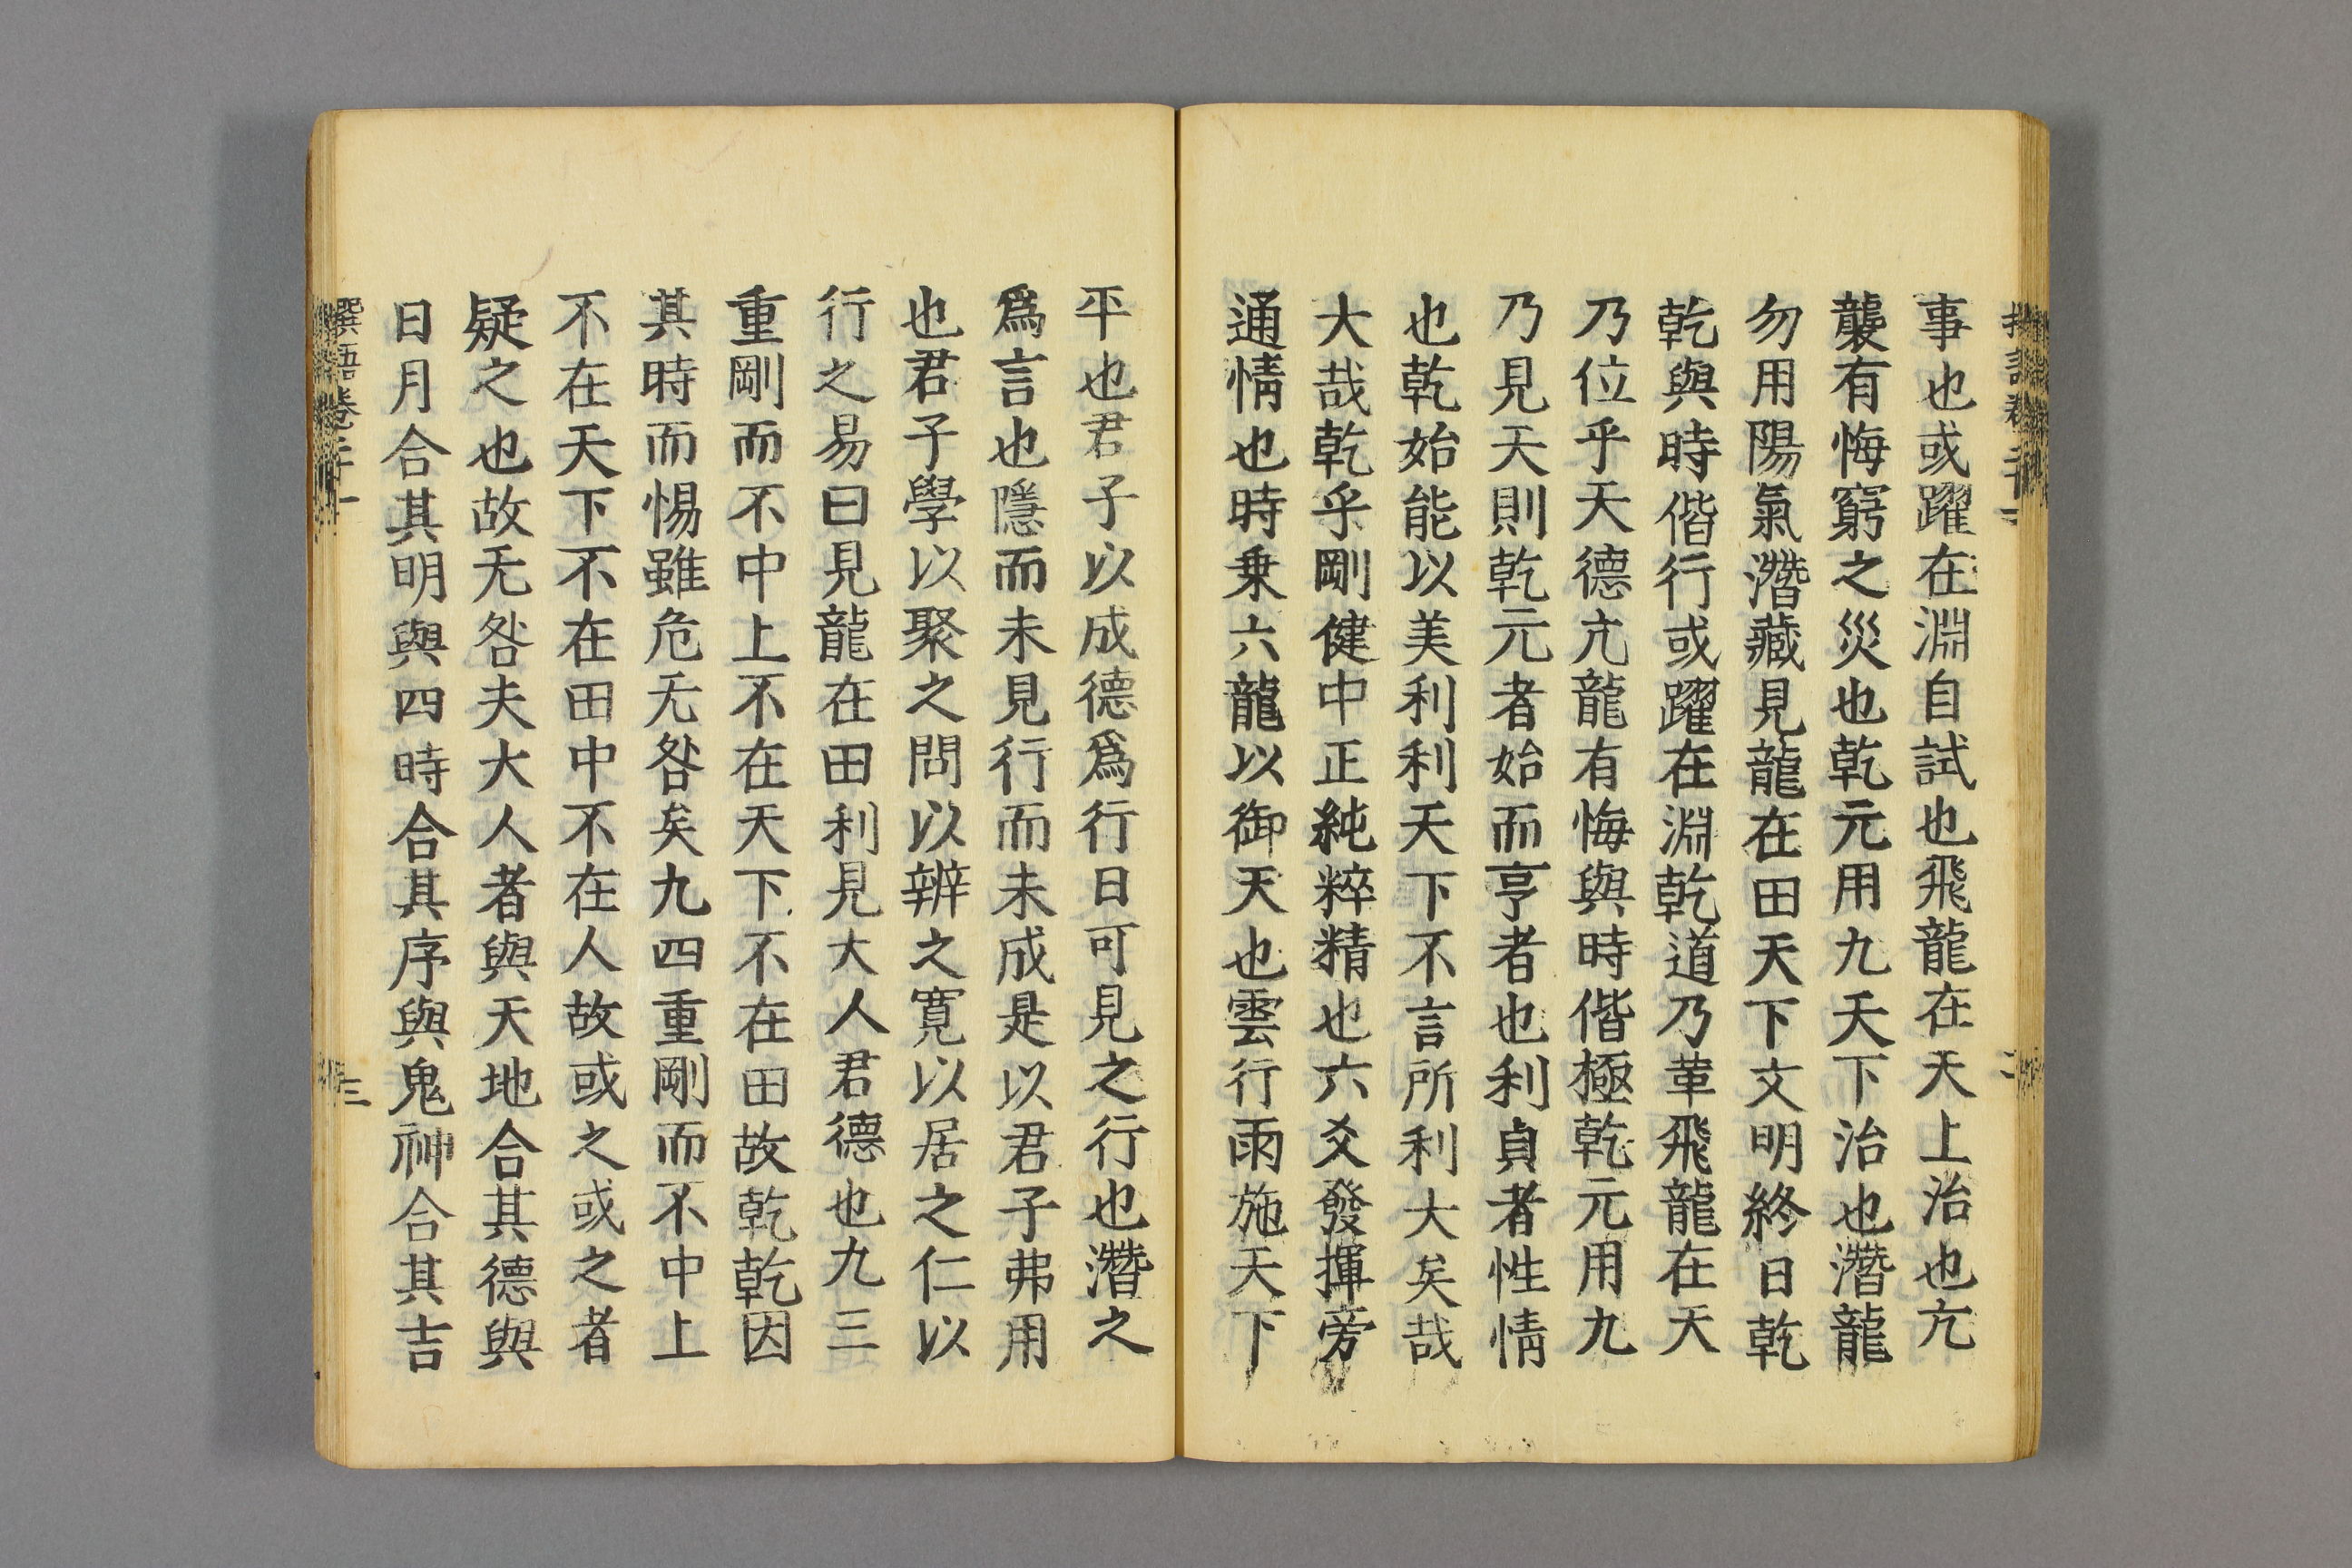 事也或躍在淵自試也飛龍在天上治也亢
襲有悔窮之災也乾元用九天下治也潛龍
勿用陽氣潛藏見龍在田天下文明終日乾
乾與時偕行或躍在淵乾道乃革飛龍在天
乃位乎天德亢龍有悔與時偕極乾元用九
乃見天則乾元者始而亨者也利貞者性情
也乾始能以美利利天下不言所利大矣哉
大哉乾乎剛健中正純粹精也六爻發揮旁
通情也時乗六龍以御天也雲行雨施天下
平也君子以成德爲行日可見之行也潛之
爲言也隱而未見行而未成是以君子弗用
也君子學以聚之問以辨之寬以居之仁以
行之易曰見龍在田利見大人君德也九三
重剛而不中上不在天下不在田故乾乾因
其時而惕雖危无咎矣九四重剛而不中上
不在天下不在田中不在人故或之或之者
疑之也故无咎夫大人者與天地合其德與
日月合其明與四時合其序與鬼神合其吉
撰語卷二十一
三